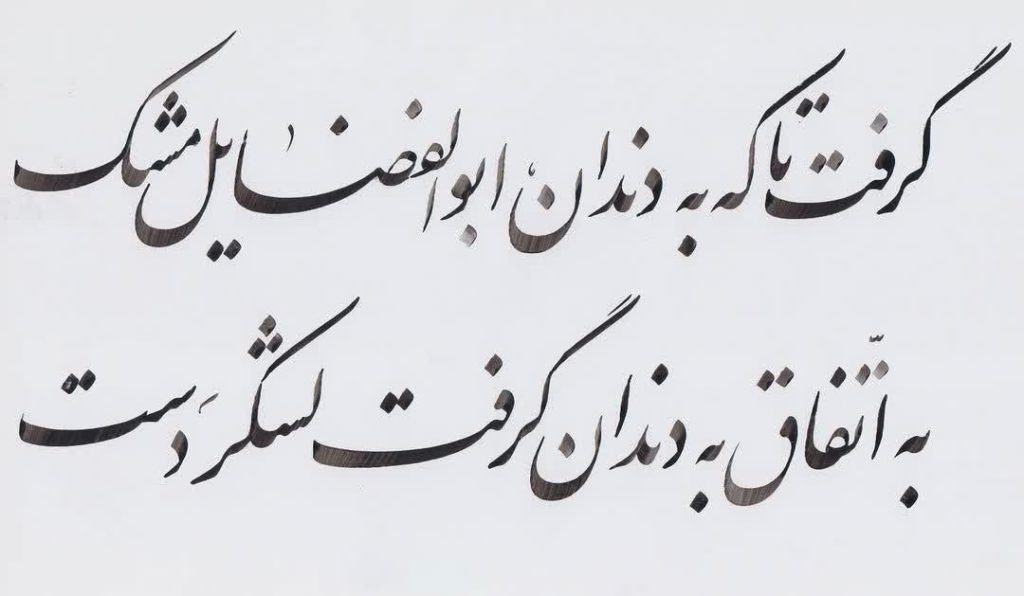 گرفت تا که به دندان، ابوالفضایل مشک
به اتّفاق به دندان گرفت لشگر دَست